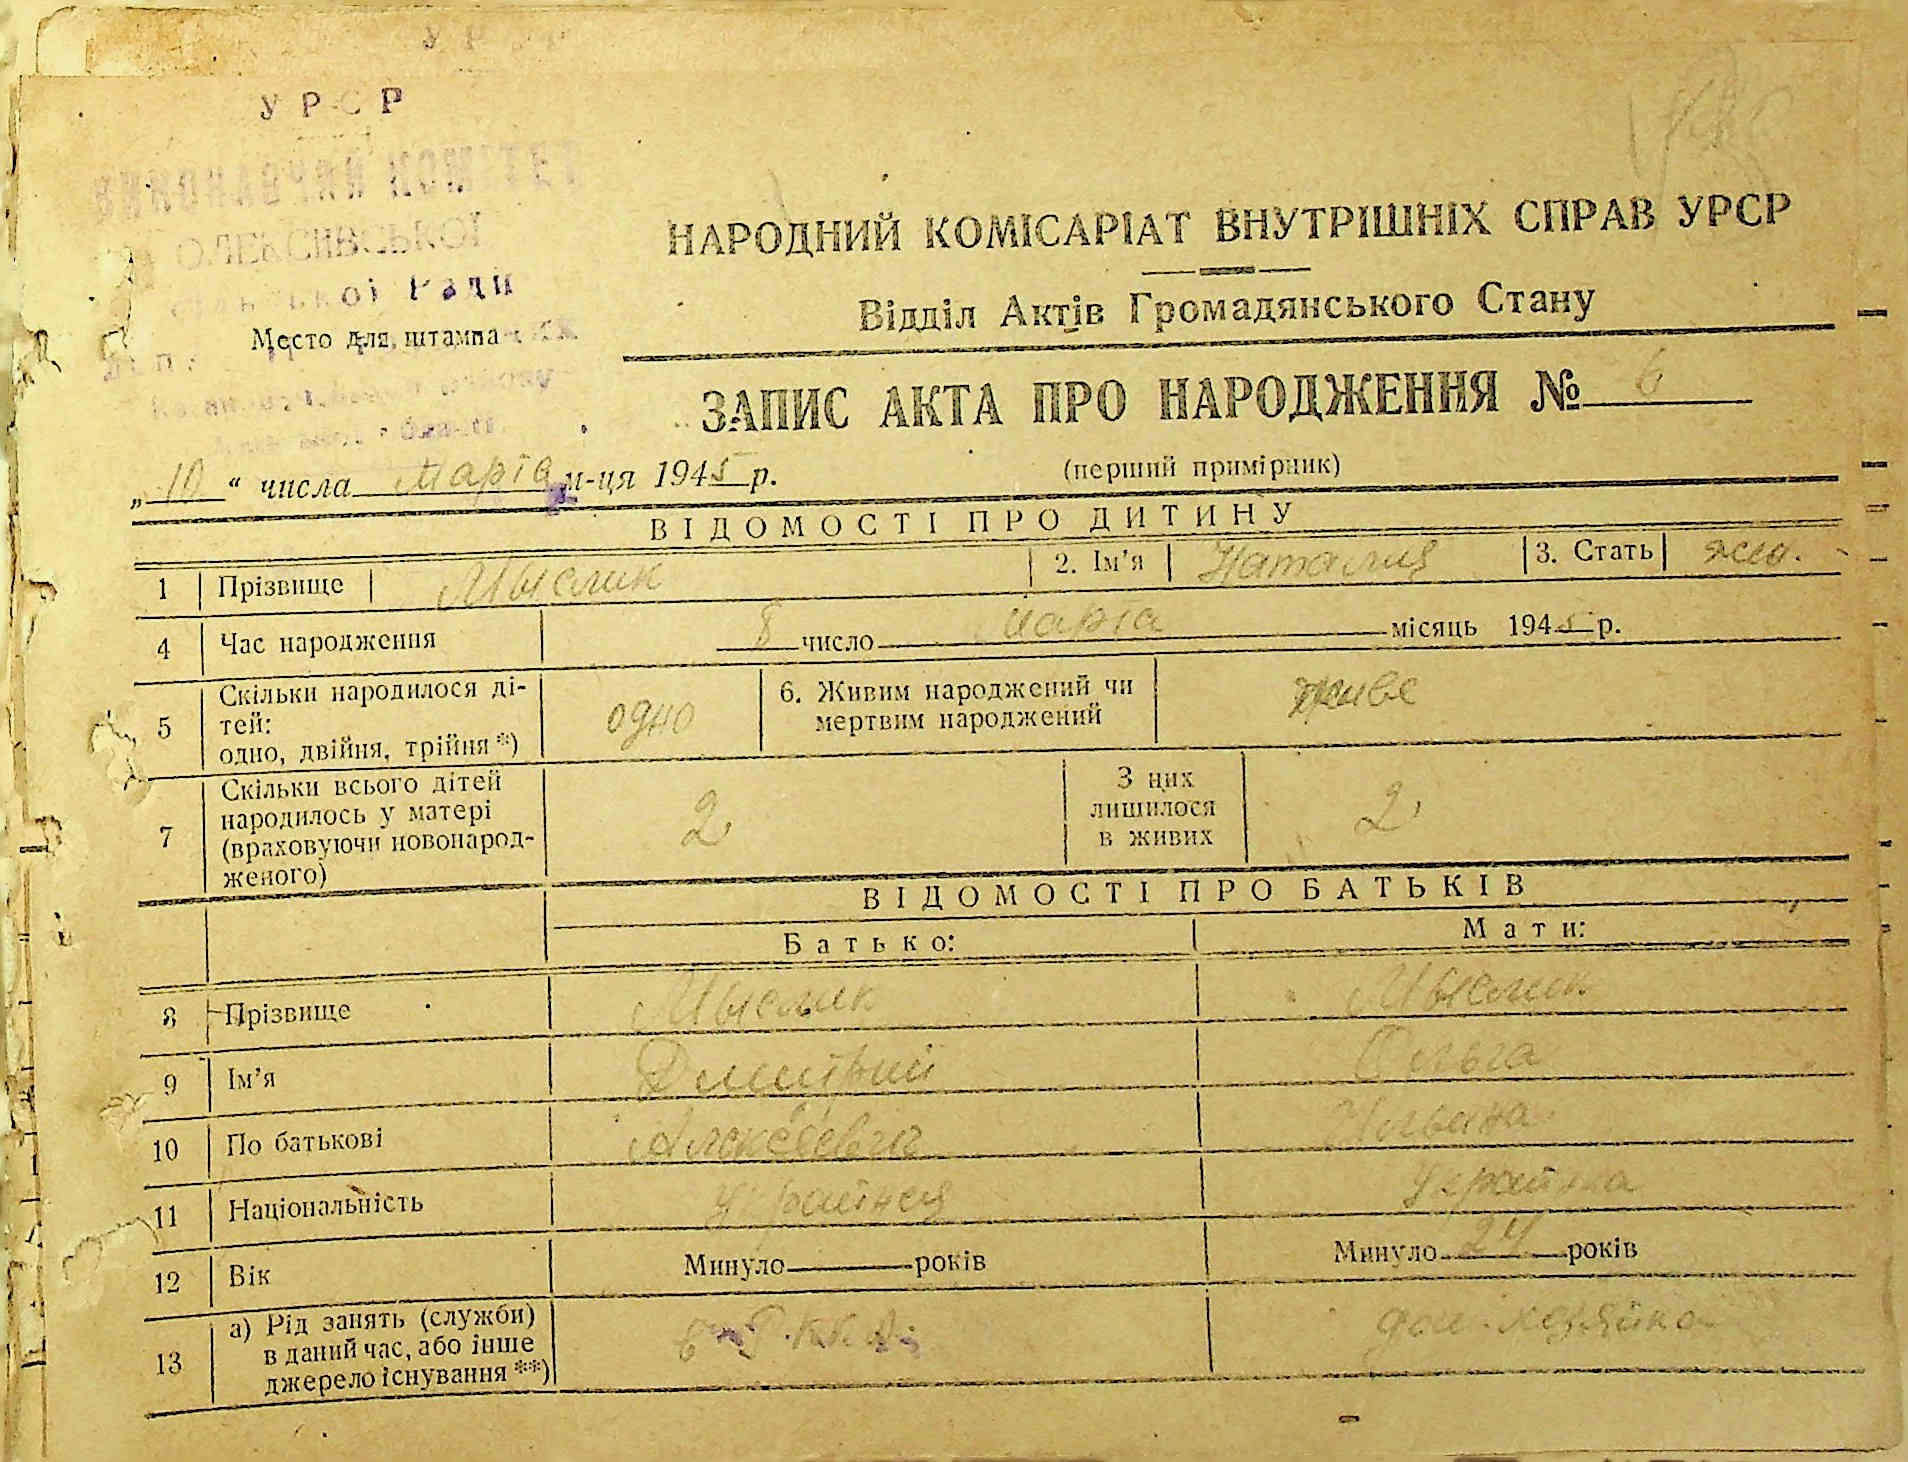 УРСР
ВИКОНАВЧИЙ КОМІТЕТ
ОЛЕКСІІВСЬКОІ
сільської Ради
Место для штампа
НАРОДНИЙ КОМІСАРІАТ ВНУТРІШНІХ СПРАВ УРСР
Відділ Актів Громадянського Стану
ЗАПИС АКТА ПРО НАРОДЖЕННЯ № 6
„10“ числа марта м-ця 1945 р. (перший примірник)
ВІДОМОСТІ ПРО ДИТИНУ
1 Прізвище Мыслик 2. Ім’я Наталия 3. Стать жен.
4 Час народження 8 число марта місяць 1945 р.
5 Скільки народилося ді-
тей:
одно, двійня, трійня *) одно 6. Живим народжений чи
мертвим народжений живе
7 Скільки всього дітей
народилось у матері
(враховуючи новонарод-
женого) 2 З цих
лишилося
в живих 2
ВІДОМОСТІ ПРО БАТЬКІВ
Батько: Мати:
8 Прізвище Мыслик Мыслик
9 Ім’я Дмитрий Ольга
10 По батькові Алексеевич
11 Національність Украинец Украинка
12 Вік Минуло років Минуло 24 років
13 а) Рід занять (служби)
в даний час, або інше
джерело існування **) в РККА дом. хозяйка